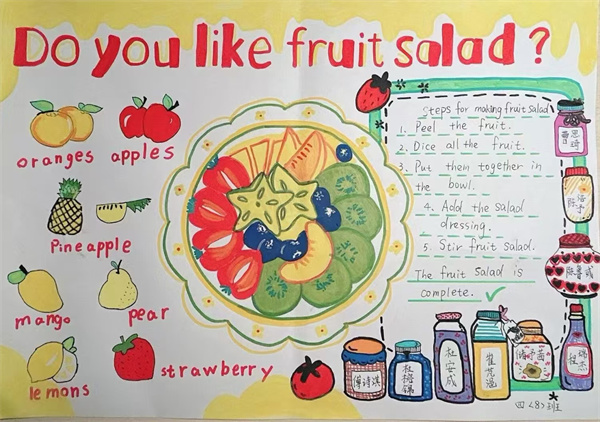 Do you like fruit salad?
oranges apples
Pineapple
mango
pear
lemons
strawberry
Steps for making fruit salad
1. Peel the fruit.
2. Dice all the fruit.
3. Put them together in
the bowl.
4. Add the salad
dressing.
5. Stir fruit salad.
The fruit salad is
complete.
杜安成
四〈8〉班